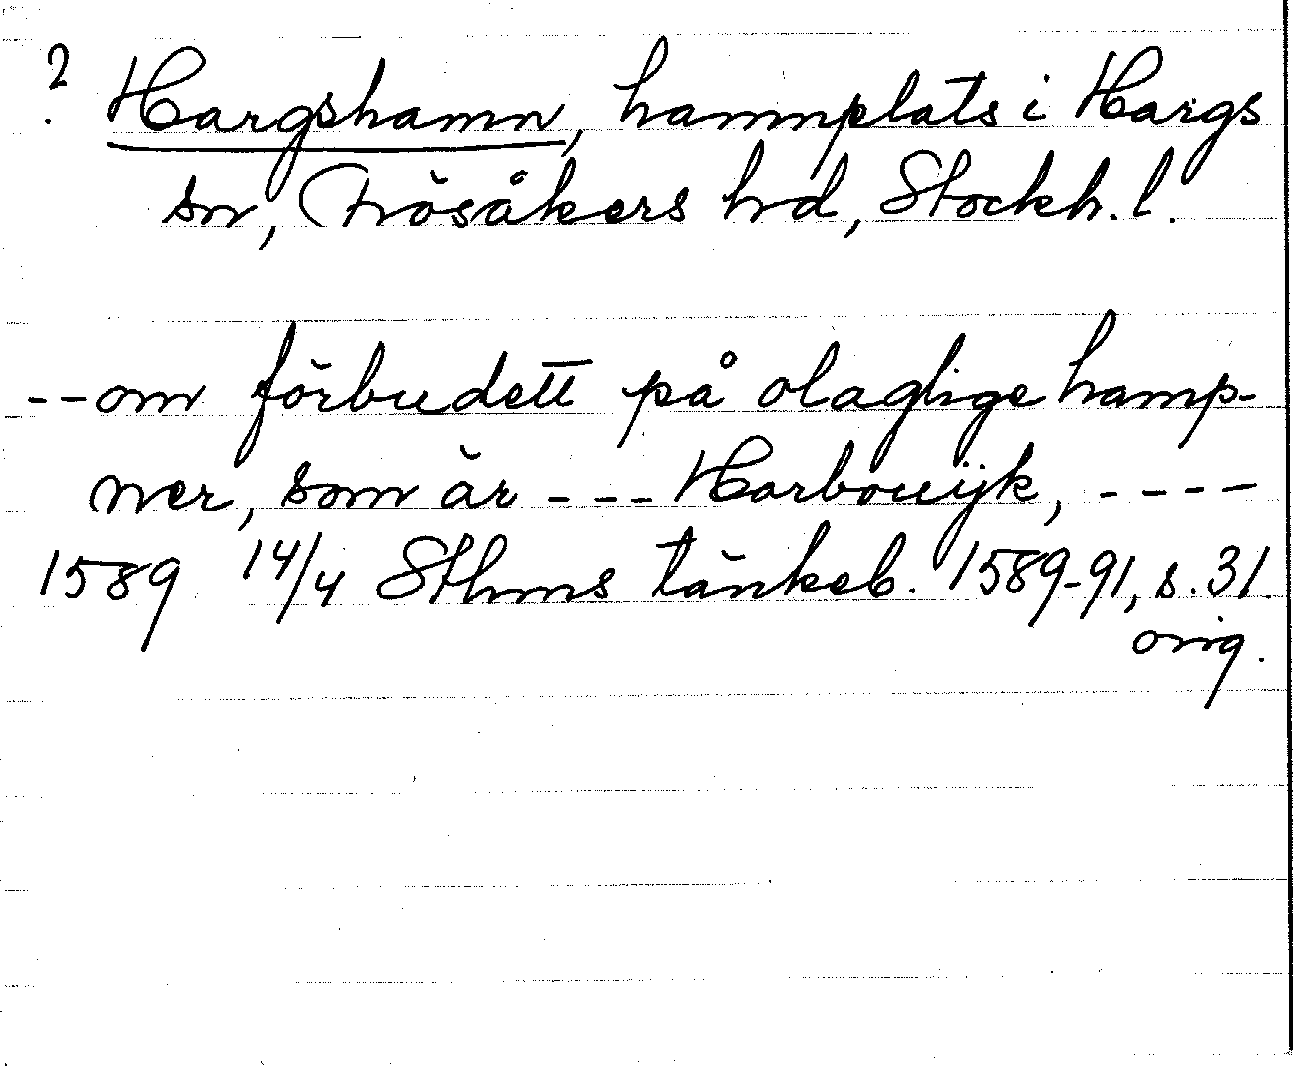 ? Hargshamn, hamnplats i Hargs
sn, Frösåkers hd, Stockh. l.
-- om förbudett på olaglige hamp-
ner, som är --- Harbowijk, ----
1589 14/4 Sthms tänkeb. 1589-91, s. 31.
orig.